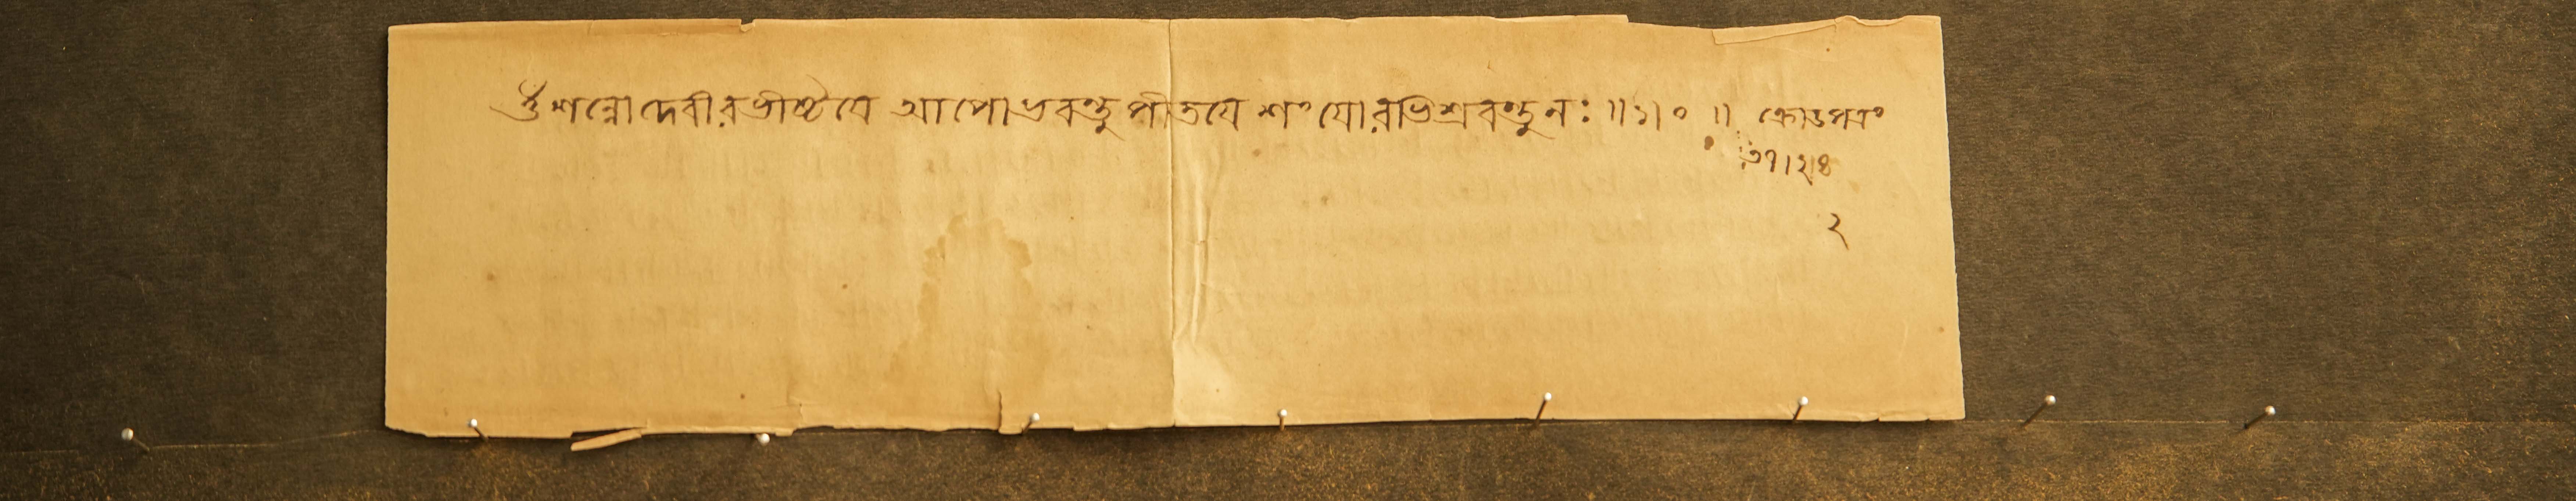 ওঁ শন্নোদেবীরভীষ্টযে আপোভবন্তু পীতযে শংযোরভিশ্রবন্তুনঃ ॥১॥০॥ ক্রোডপত্রং
৩৭।২।৪
২